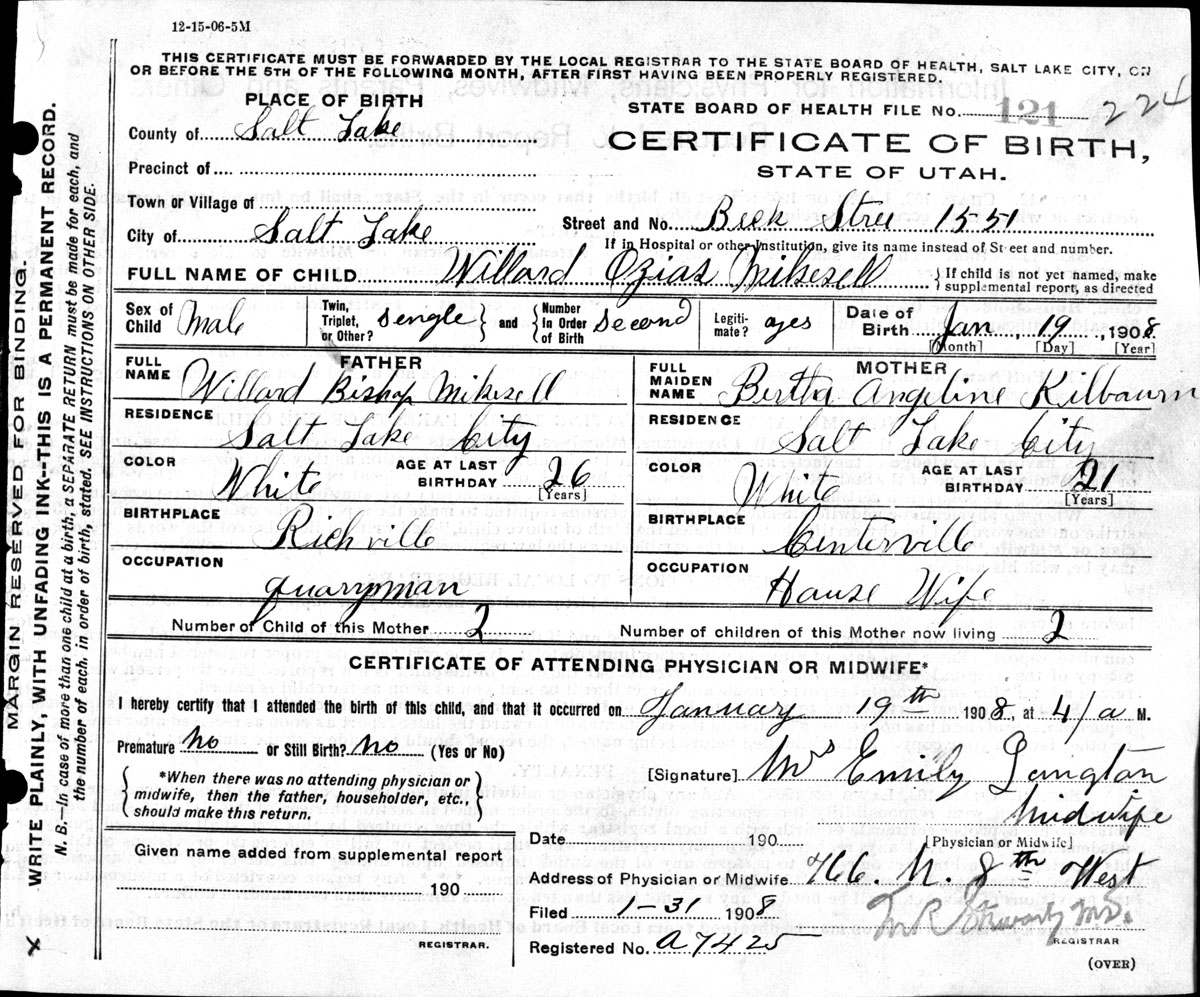 12-15-06-5M
THIS CERTIFICATE MUST BE FORWARDED BY THE LOCAL REGISTRAR TO THE STATE BOARD OF HEALTH, SALT LAKE CITY, ON
OR BEFORE THE 5TH OF THE FOLLOWING MONTH, AFTER FIRST HAVING BEEN PROPERLY REGISTERED.
PLACE OF BIRTH
STATE BOARD OF HEALTH FILE No. 121 224
County of Salt Lake
CERTIFICATE OF BIRTH,
STATE OF UTAH.
Precinct of
Town or Village of
Street and No. Beck Stree 1551
City of Salt Lake
If in Hospital or other Institution, give its name instead of Street and number.
FULL NAME OF CHILD Willard Ozias Mikesell
If child is not yet named, make
supplemental report, as directed
Sex of Child Male
Twin, Triplet, or Other? sengle and Number in Order of Birth second
Legitimate? ayes
Date of Birth Jan 19, 1908
[Month] [Day] [Year]
FATHER
FULL NAME Willard Bishop Mikesell
RESIDENCE Salt Lake City
COLOR White
AGE AT LAST BIRTHDAY 26
[Years]
BIRTHPLACE Richville
OCCUPATION quaryman
MOTHER
FULL MAIDEN NAME Bertha Angeline Kilbourn
RESIDENCE Salt Lake City
COLOR White
AGE AT LAST BIRTHDAY 21
[Years]
BIRTHPLACE Centerville
OCCUPATION Hause Wife
Number of Child of this Mother 2
Number of children of this Mother now living 2
CERTIFICATE OF ATTENDING PHYSICIAN OR MIDWIFE*
I hereby certify that I attended the birth of this child, and that it occurred January 19th 1908, at 4/a M.
Premature no or Still Birth? no (Yes or No)
*When there was no attending physician or
midwife, then the father, householder, etc.,
should make this return.
[Signature] Mrs Emily Langton
Midwife
[Physician or Midwife]
Given name added from supplemental report
190
REGISTRAR.
Dated 190
Address of Physician or Midwife 766. N. 8th West
Filed 1-31 1908
Registered No. a7425
M.D.
REGISTRAR
(OVER)
MARGIN RESERVED FOR BINDING.
WRITE PLAINLY, WITH UNFADING INK-THIS IS A PERMANENT RECORD.
N. B.—In case of more than one child at a birth, a SEPARATE RETURN must be made for each, and
the number of each, in order of birth, stated. SEE INSTRUCTIONS ON OTHER SIDE.